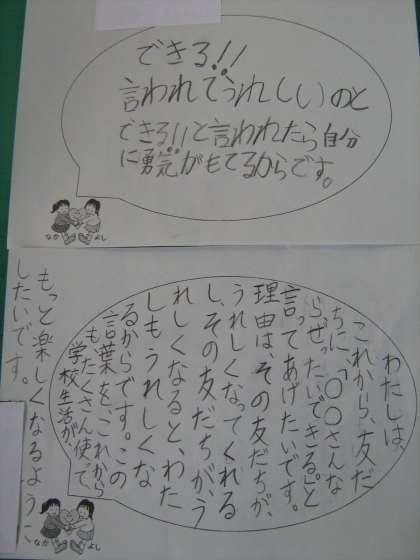 できる!!
言われてうれしいのと
できる!!と言われたら自分
に勇気がもてるからです。
なか よし
わたしは、
これから、友だ
ちに、「○○さんな
らぜったいできる」と
言ってあげたいです。
理由は、その友だちが、
うれしくなってくれる
し、その友だちが、う
れしくなると、わた
しもうれしくな
るからです。この
言葉を、これから
も、たくさん使って、
学校生活が、
もっと楽しくなるように
したいです。
なか よし